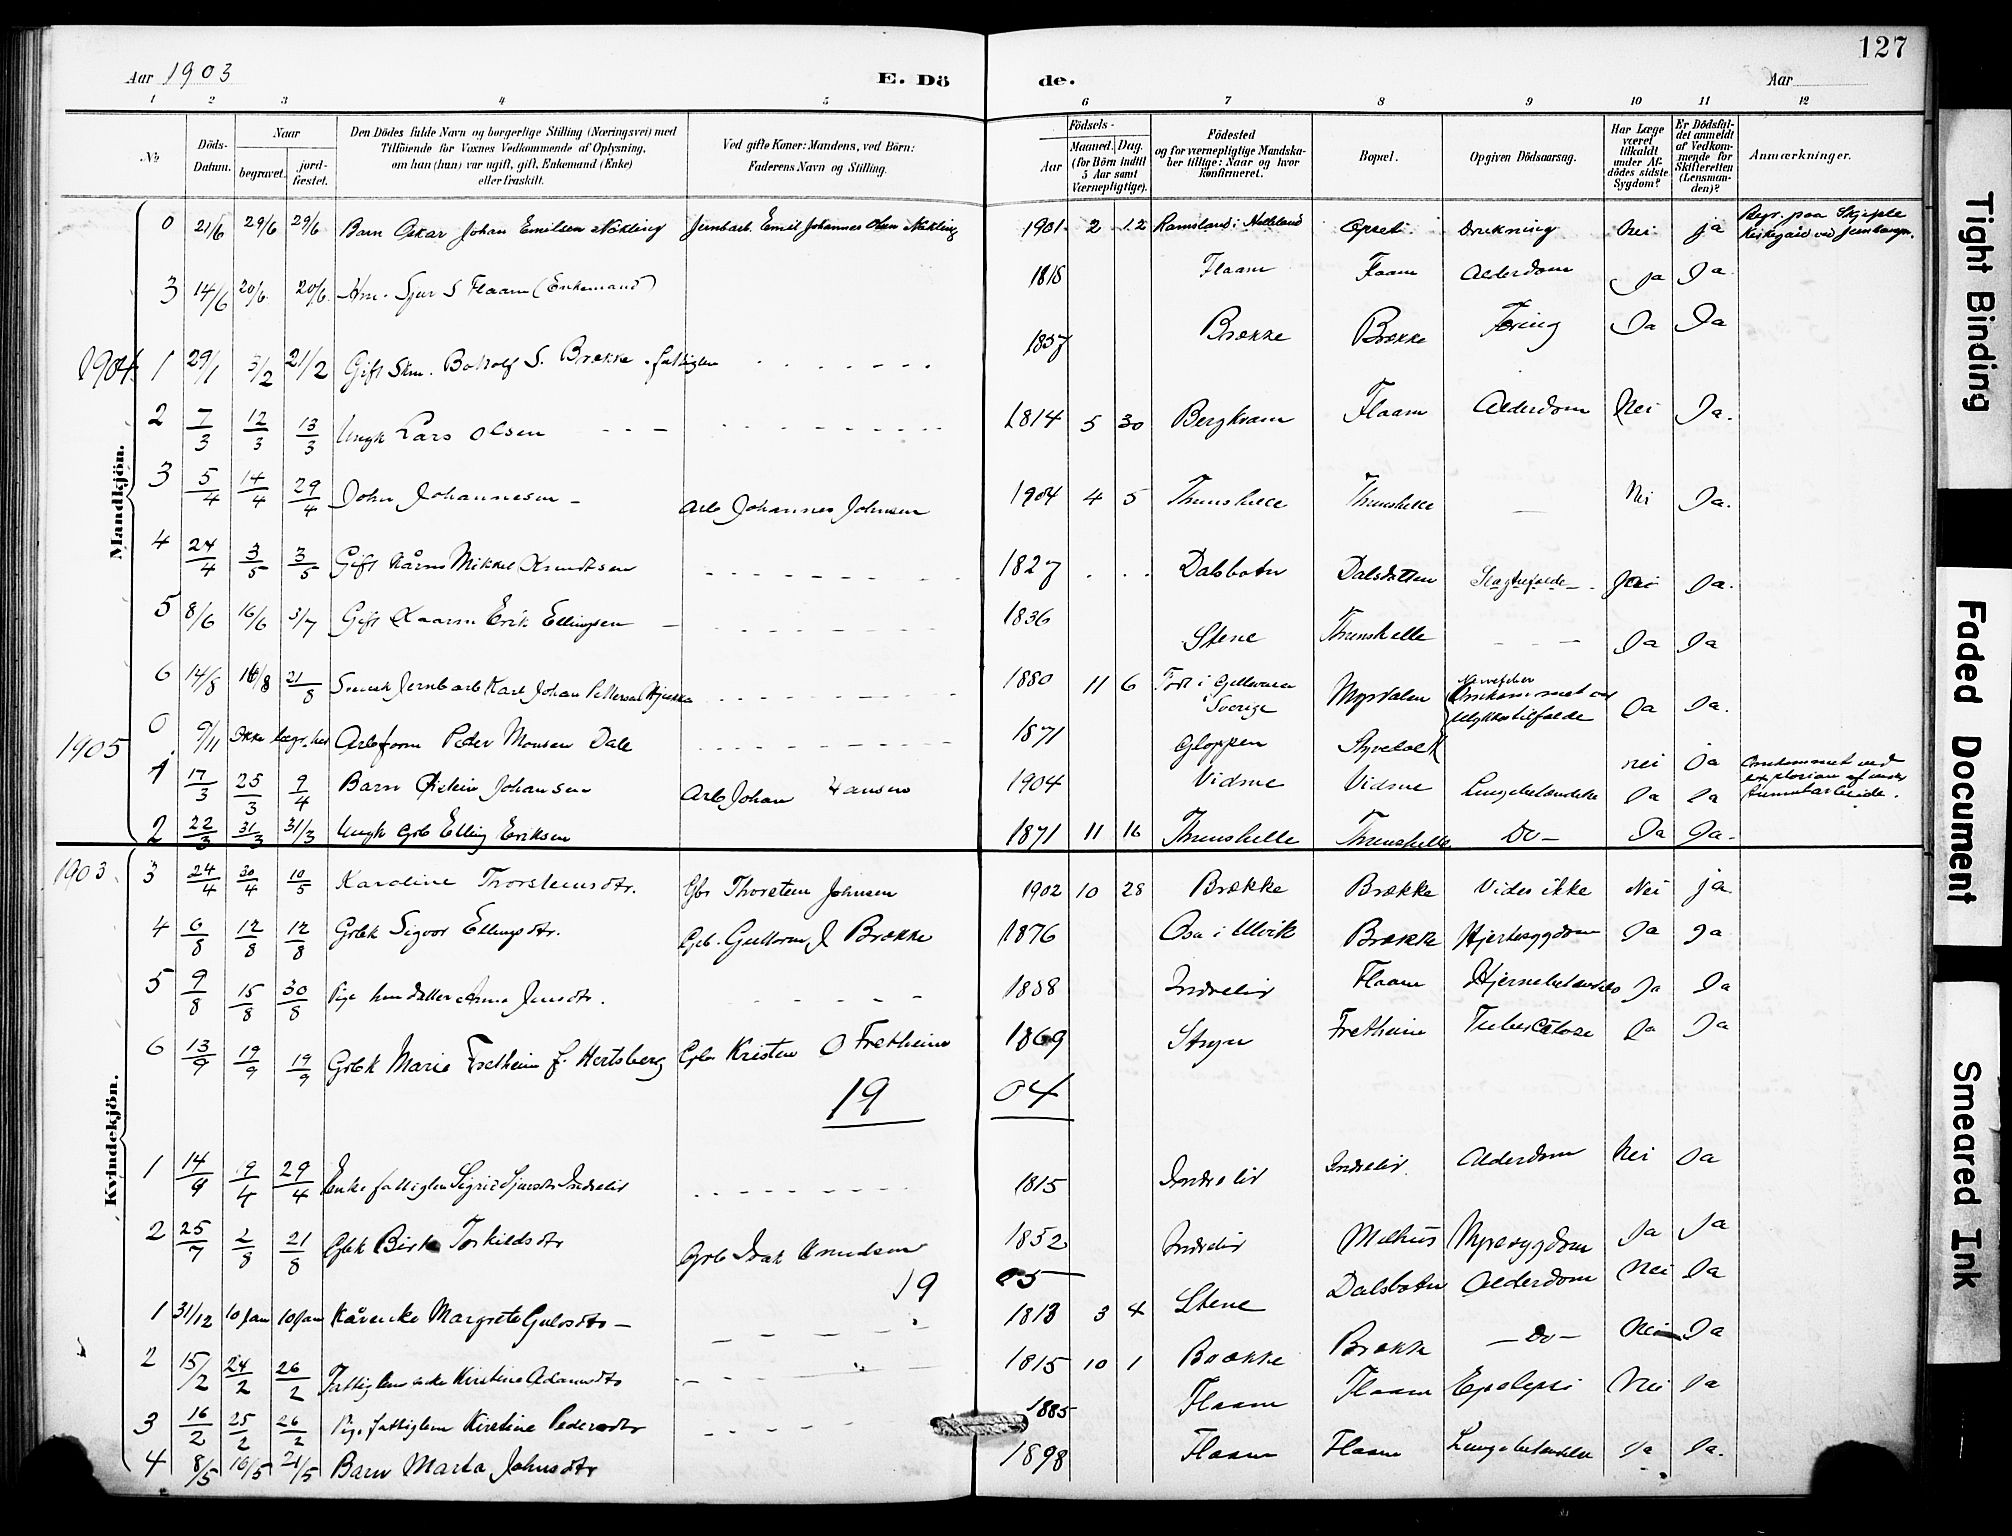 127
Aar 1903 E. Dö de. Aar
1 2 3 4 5 6 7 8 9 10 11 12
No Döds-Datum. Naar begravet. jord-fæstet. Den Dödes fulde Navn og borgerlige Stilling (Næringsvei) med Tilföiende for Voxnes Vedkommende af Oplysning, om han (hun) var ugift, gift, Enkemand (Enke) eller fraskilt. Ved gifte Koner: Mandens, ved Börn: Faderens Navn og Stilling. Födsels- Aar Maaned. Dag. (for Börn indtil 5 Aar samt Værnepligtige). Födested og for værnepligtige Mandskaber tillige: Naar og hvor konfirmeret. Bopæl. Opgiven Dödsaarsag. Har Læge været tilkaldt under Afdödes sidste Sygdom? Er Dödsfaldet anmeldt af Vedkommende for Skifteretten (Lensmanden)? Anmærkninger.
Mandkjön.
0 21/6 29/6 29/6 Barn Oskar Johan Emilsen Nökling Jernbarb. Emil Johannes Olsen Nökling 1901 2 12 Opset Drukning Nei ja
3 14/6 20/6 20/6 Sjur S Flaam (Enkemand) 1818 Flaam Flaam Alderdom Ja Ja
1904 1 29/1 3/2 21/2 Gift S. Brække fattiglem 1857 Brække Brække Tæring Ja Ja
2 7/3 12/3 13/3 Ungk Lars Olsen 1814 5 30 Bergkvam Flaam Alderdom Nei Ja.
3 5/4 14/4 29/4 John Johannesen - Arb Johannes Johnsen 1904 4 5 Thunshelle Thunshelle — Nei Ja.
4 24/4 3/5 3/5 Gift Kårm Mikkel Knudtsen 1827 Dalsbotn Dalsbotten Slagtilfælde Nei Ja.
5 8/6 16/6 3/7 Gift Kaarm Erik Ellingsen 1836 Stene Thunshelle — Ja Ja
6 14/8 18/8 21/8 Svensk Jernbarb Karl Johan Petterson 1880 11 6 Født i Gellivara Sverige Myrdalen Omkommet ved Ulykkestilfælde Ja Ja.
1905 0 9/11 Ikke begr. her Arbform Peder Monsen Dale 1871 Gloppen nei Ja Omkommet ved explosion af under tunnelarbeide.
1 17/3 25/3 9/4 Barn Øistein Johansen Arb Johan Hansen 1904 Vidme Vidme Lungebetændelse Ja Ja
2 22/3 31/3 31/3 Ungk Grb Elling Eriksen 1871 11 16 Thunshelle Thunshelle Do- Ja Ja-
Kvindekjön.
1903. 3 24/4 30/4 10/5 Karoline Thorsteinsdtr. Gbr Thorstein Johnsen 1902 10 28 Brække Brække Vides ikke Nei ja
4 6/8 12/8 12/8 Grbk Sigvor Ellingsdtr. Grb. Guttorm J Brække 1876 Osa i Ulvik Brække Hjertesygdom Ja Ja
5 9/8 15/8 30/8 Pige Anna Jensdtr. 1838 Indrelid Flaam Hjernebetændelse Ja Ja
6 13/9 19/9 19/9 Grbk Marie Fretheim f. Hertsberg Gbr Kristen O Fretheim 1869 Stryn Fretheim Tuberculose Ja Ja
1904
1 14/4 19/4 29/4 Enke fattiglem Sigrid Sjursdtr Indrelid 1815 Indrelid Indrelid. Alderdom Nei Ja
2 25/7 2/8 21/8 Gbk Birte Torkildsdtr Grb Isak Knudsen 1852 Indrelid Melhus Mavesygdom Ja Ja
1905
1 31/12 10 Jan 10 Jan Kårenke Margrete Gulosdtr — 1813 3 4 Stene Dalsbotn Alderdom Nei Ja
2 15/2 24/2 26/2 Fattiglem enke Kirstine Adamsdtr 1815 10 1 Brække Brække — Do — Nei Ja
3 16/2 25/2 26/2 Pige fattiglem Kirstine Pedersdtr 1885 Flaam Flaam Epelepsi Nei Ja
4 8/5 16/5 21/5 Barn Marta Johnsdtr 1898 Flaam Flaam Lungebetændelse Ja Ja.
Tight Binding
Faded Document
Smeared Ink